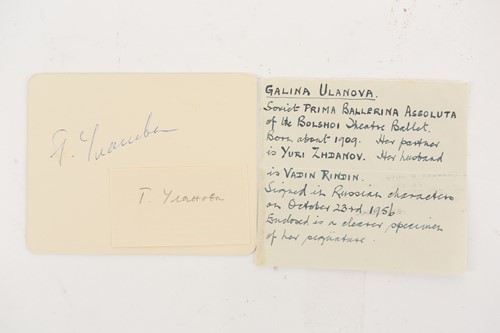 Г. Уланова
Г. Уланова
GALINA ULANOVA.
Soviet PRIMA BALLERINA ASSOLUTA
of the BOLSHOI Theatre Ballet.
Born about 1909. Her partner
is YURI ZHDANOV. Her husband
is VADIN RINDIN.
Signed in Russian characters
on October 23rd 1956
Enclosed is a clearer specimen
of her signature.